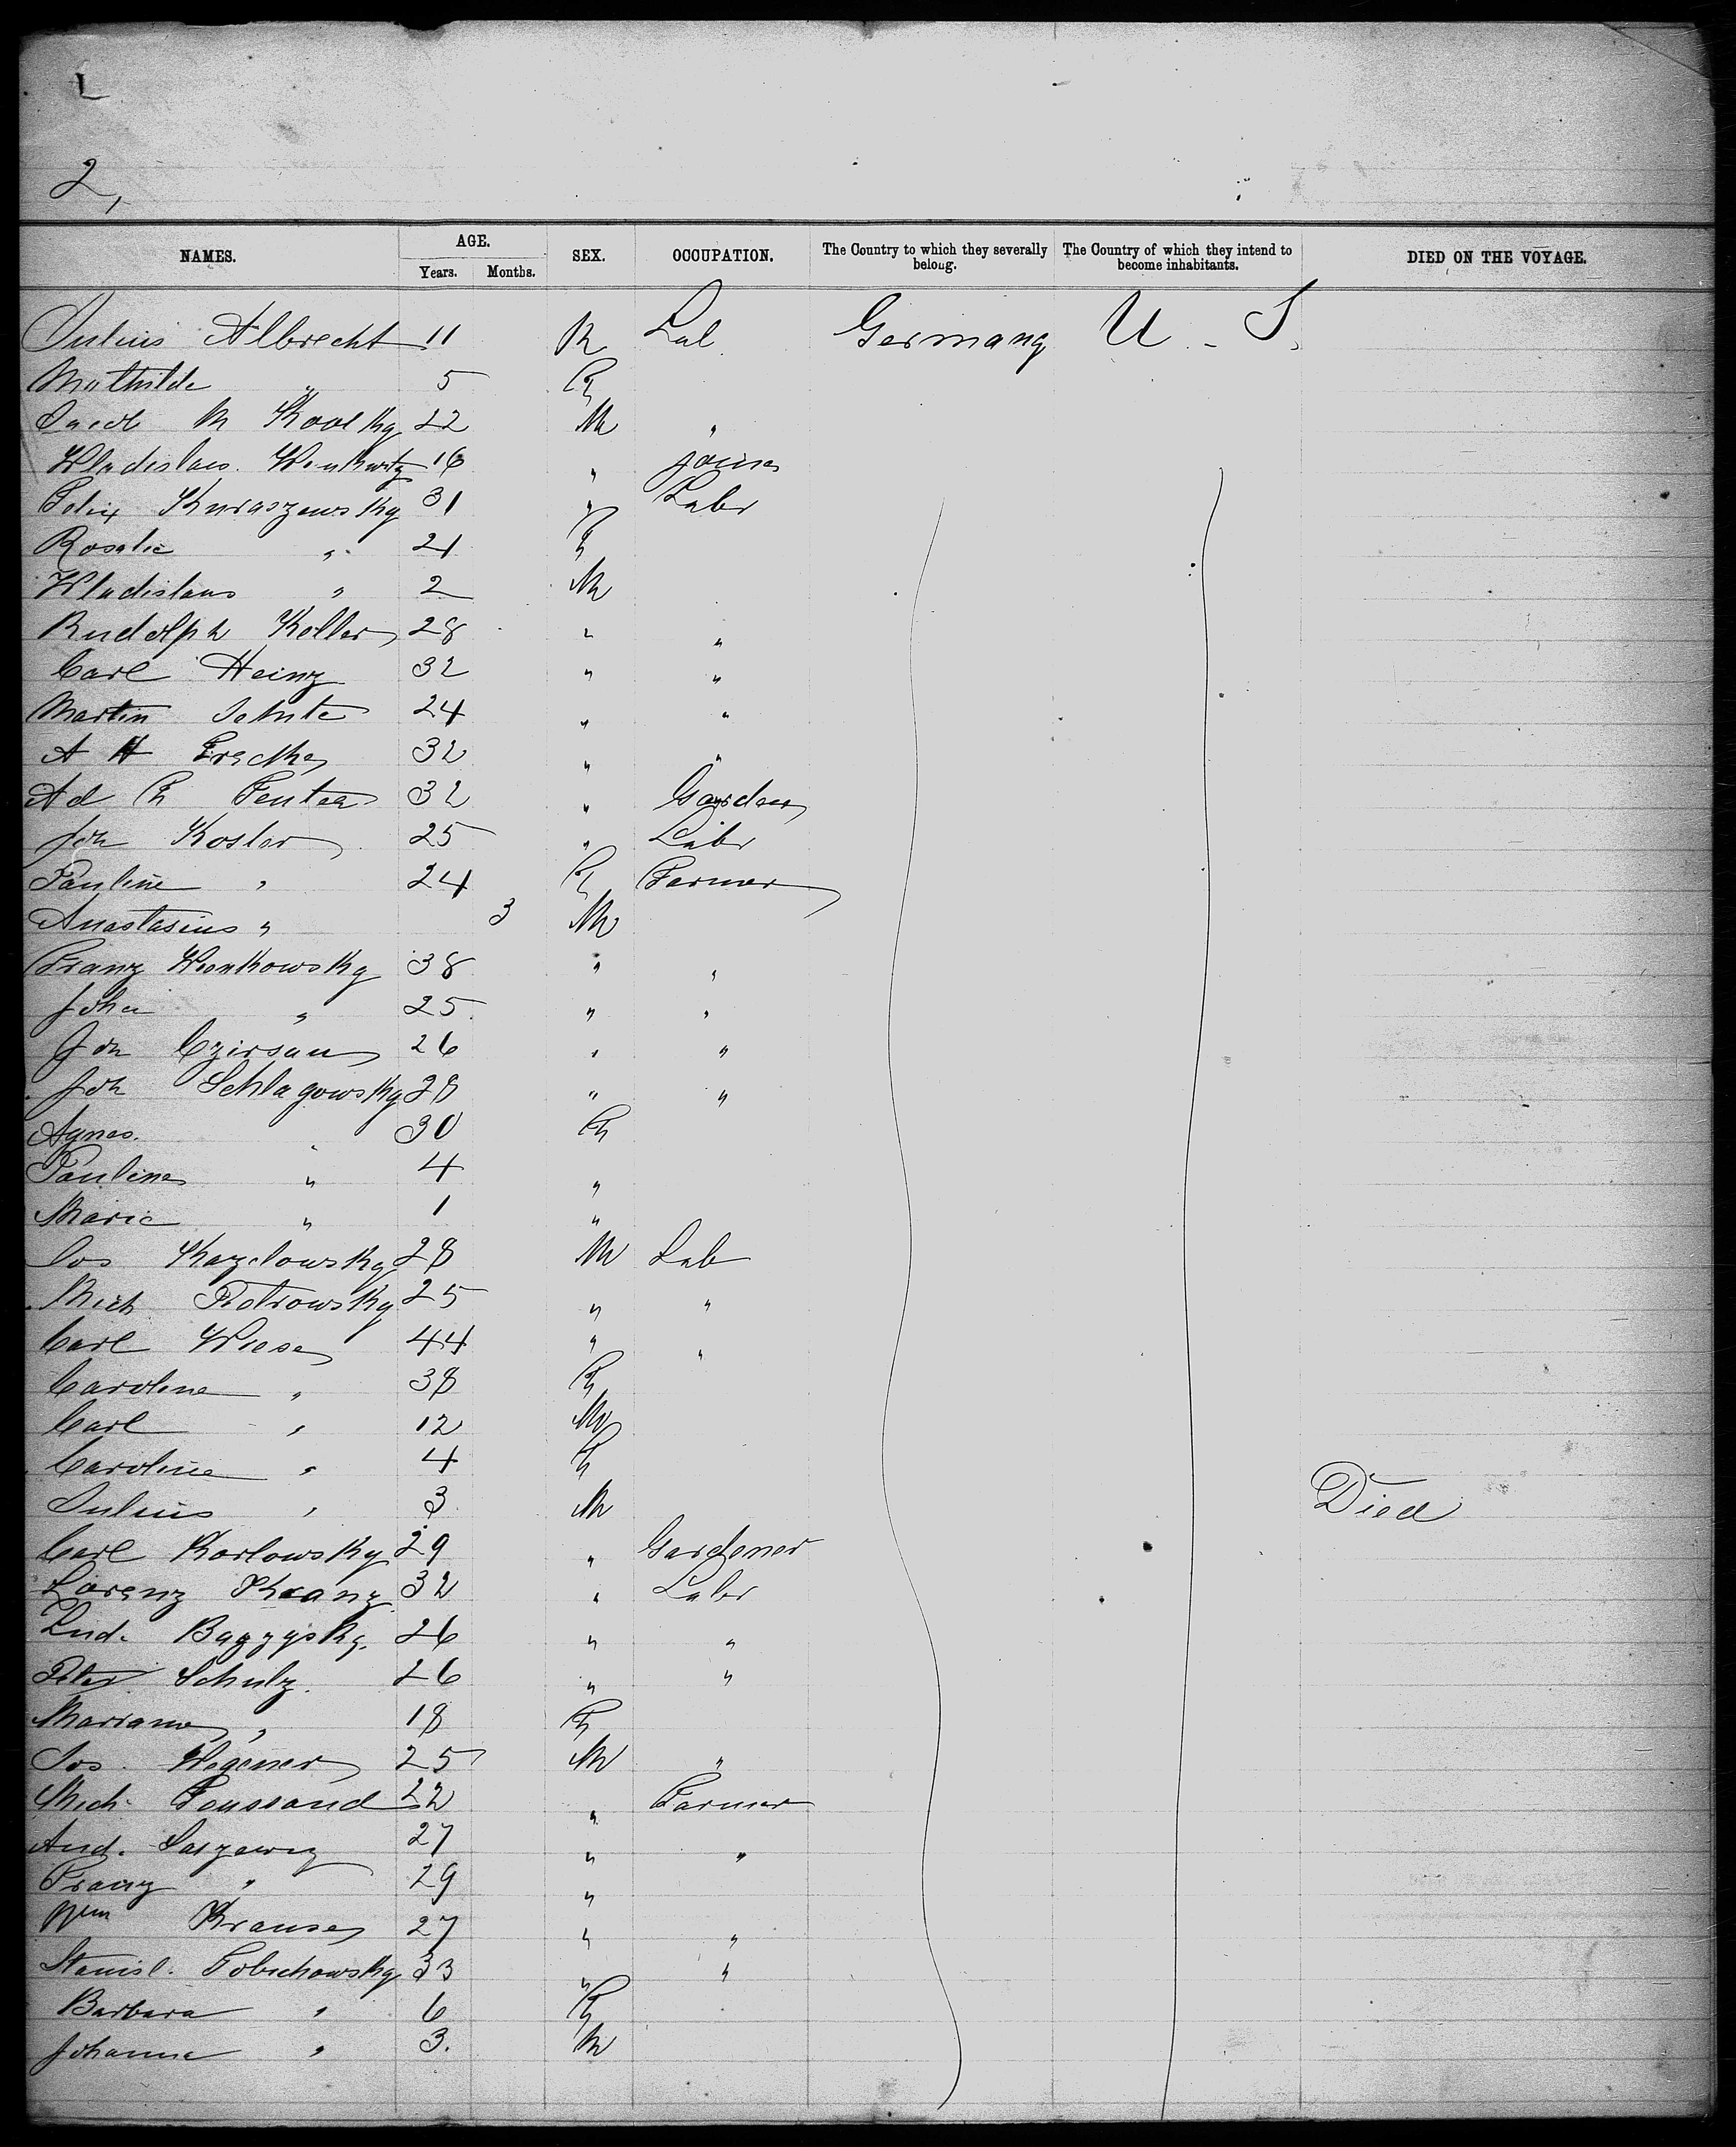 L
2,
NAMES. AGE. SEX. OCCUPATION. The Country to which they severally belong. The Country of which they intend to become inhabitants. DIED ON THE VOYAGE.
Years. Months.
Julius Albrecht 11 M Lab Germany U. S.
Mathilde " 5 F
Jacob M 22 M "
Wladislaus 16 " Joiner
Felix Kuraszewsky 31 " Labr
Rosalie " 21 F
Wladislaus " 2 M
Rudolph Keller 28 " "
Carl Heinz 32 " "
Martin 24 " "
A H 32 " "
Ad F 32 " Garden
Joh Koslor 25 " Labr
Pauline " 24 F Farmer
Anastasius " 3 M
Franz Wenkowsky 38 " "
Joha " 25 " "
Joh Czirsau 26 " "
Joh Schlagowsky 28 " "
Agnes. " 30 F
Pauline " 4 "
Marie " 1 "
Jos Kazelowsky 28 M Lab
Mich Petrowsky 25 " "
Carl Wiese 44 " "
Caroline " 38 F
Carl " 12 M
Caroline " 4 F
Julius " 3 M Died
Carl Karlowsky 29 " Gardener
Lorenz Kranz 32 " Labr
Lud. 26 " "
Peter Schulz. 26 " "
Mariane " 18 F
Jos. Wegener 25 M "
Mich. 22 " Farmer
And. 27 " "
Franz " 29 "
Wm Krause 27 " "
Stanisl. 33 " "
Barbara " 6 F
Johanna " 3. M